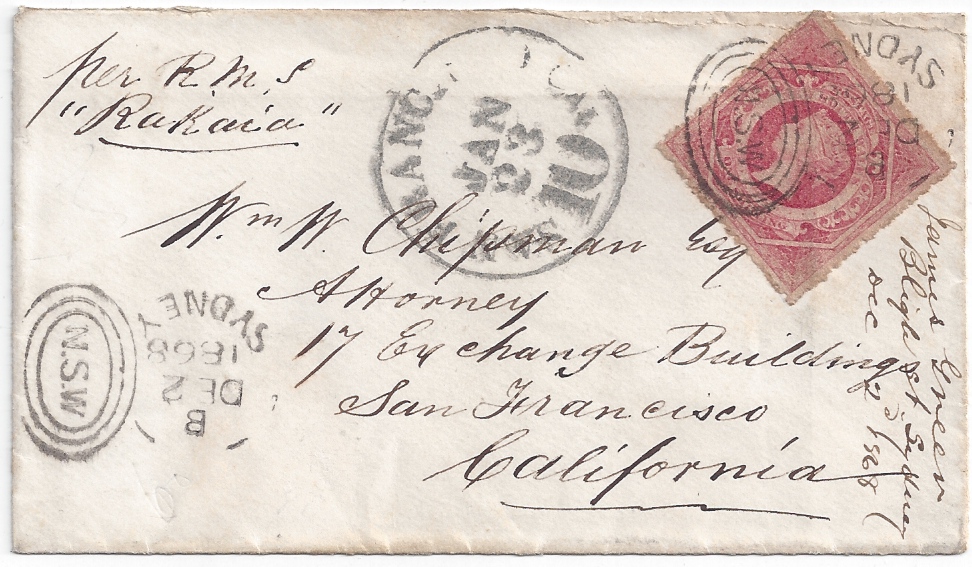 per R.M.S
"Rakaia"
SAN FRANCISCO CAL
JAN
23
10
SYDNEY
18
DE
B
N.S.W
Wm W. Chipman Esq
Attorney
17 Exchange Buildings
San Francisco
California
SYDNEY
1868
DE 2
B
N.S.W
James Green
Bligh St Sydney
Dec 2d/1868